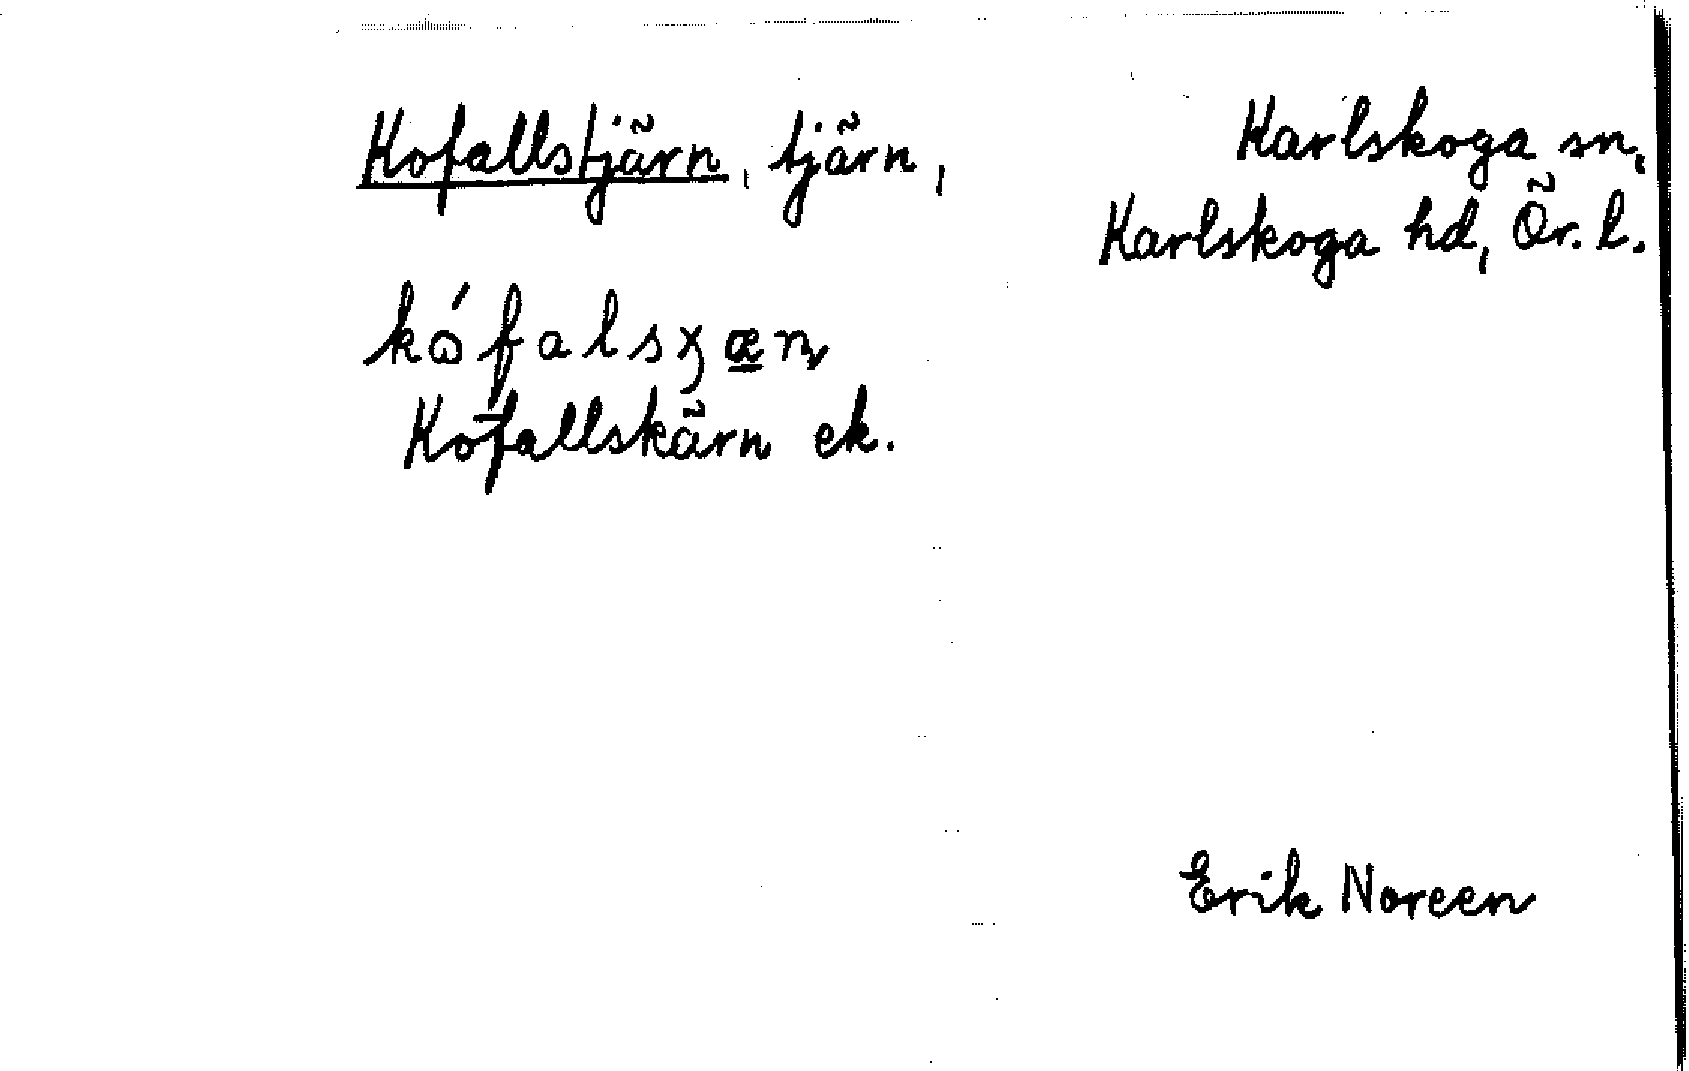 Kofallstjärn, tjärn,
Karlskoga sn,
Karlskoga hd, Ör. l.
kófalsꭓæn
Kofallskärn ek.
Erik Noreen